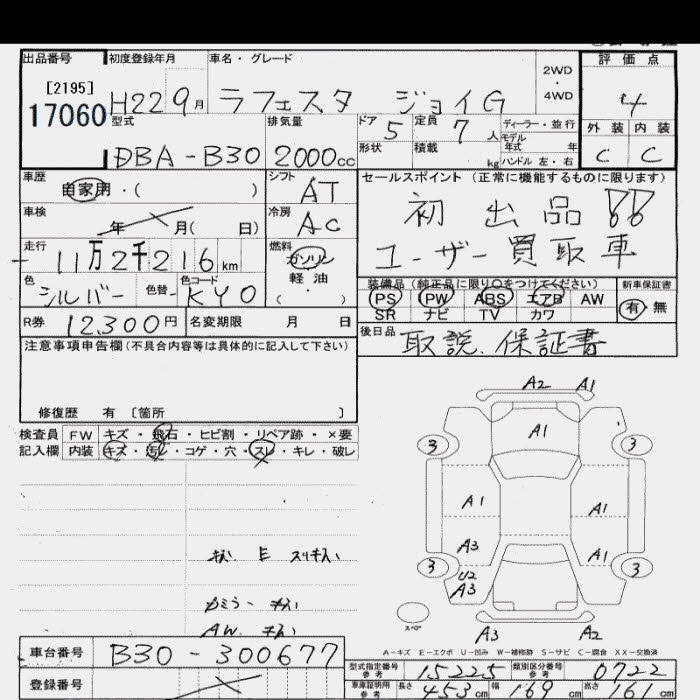 出品番号 初度登録年月 車名・グレード 2WD・4WD 評価点
[2195]
17060 H22 9月 ラフェスタ ジョイG 4
型式 排気量 ドア 5 定員 7人 ディーラー・並行 外装 内装
モデル年式 年
DBA-B30 2000cc 形状 積載 kg ハンドル 左・右 C C
車歴 自家用・( ) シフト AT セールスポイント (正常に機能するものに限ります)
車検 年 月( 日) 冷房 AC 初出品!!
走行 11万2千216km 燃料 ガソリン 軽油 ( ) ユーザー買取車
色 シルバー 色替 色コード KY0 装備品(純正品に限り○をつけてください) 新車保証書
PS PW ABS エアB AW 有・無
SR ナビ TV カワ
R券 12,300円 名変期限 月 日 後日品 取説.保証書
注意事項申告欄(不具合内容等は具体的に記入して下さい)
修復歴 有 〔箇所 〕
検査員 FW キズ・飛石・ヒビ割・リペア跡・×要
記入欄 内装 キズ・汚レ・コゲ・穴・スレ・キレ・破レ
A2 A1
A1
3 3
A1 A1
A3 A1
3 3
U2
A3
スペア
A3 A2
A-キズ E-エクボ U-凹み W-補修跡 S-サビ C-腐食 XX-交換済
車台番号 B30-300677
型式指定番号 参考 15225 類別区分番号 参考 0722
登録番号 車庫証明用 参考 長さ 453cm 幅 169cm 高さ 16 cm